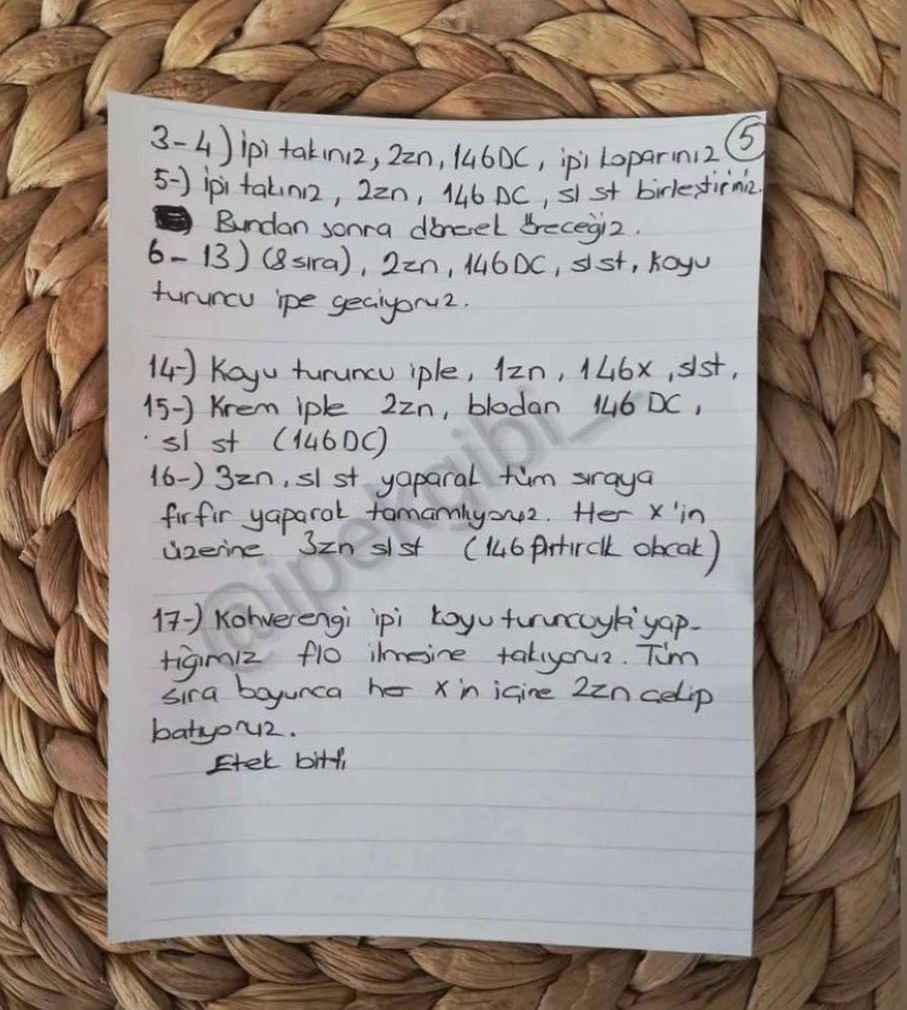 5
3-4) İpi takınız, 2zn, 146DC, ipi koparınız
5-) İpi takınız, 2zn, 146 DC, sl st birleştiriniz.
Bundan sonra dönerek öreceğiz.
6-13) (8 sıra), 2zn, 146DC, slst, koyu
turuncu ipe geçiyoruz.
14-) Koyu turuncu iple, 1zn, 146x, slst,
15-) Krem iple 2zn, blodan 146 DC,
sl st (146DC)
16-) 3zn, sl st yaparak tüm sıraya
fırfır yaparak tamamlıyoruz. Her x'in
üzerine 3zn slst (146 pıtırcık olacak)
17-) Kahverengi ipi koyu turuncuyla yap-
tığımız flo ilmeğine takıyoruz. Tüm
sıra boyunca her x'in içine 2zn çekip
batıyoruz.
Etek bitti
@ipekgibi_